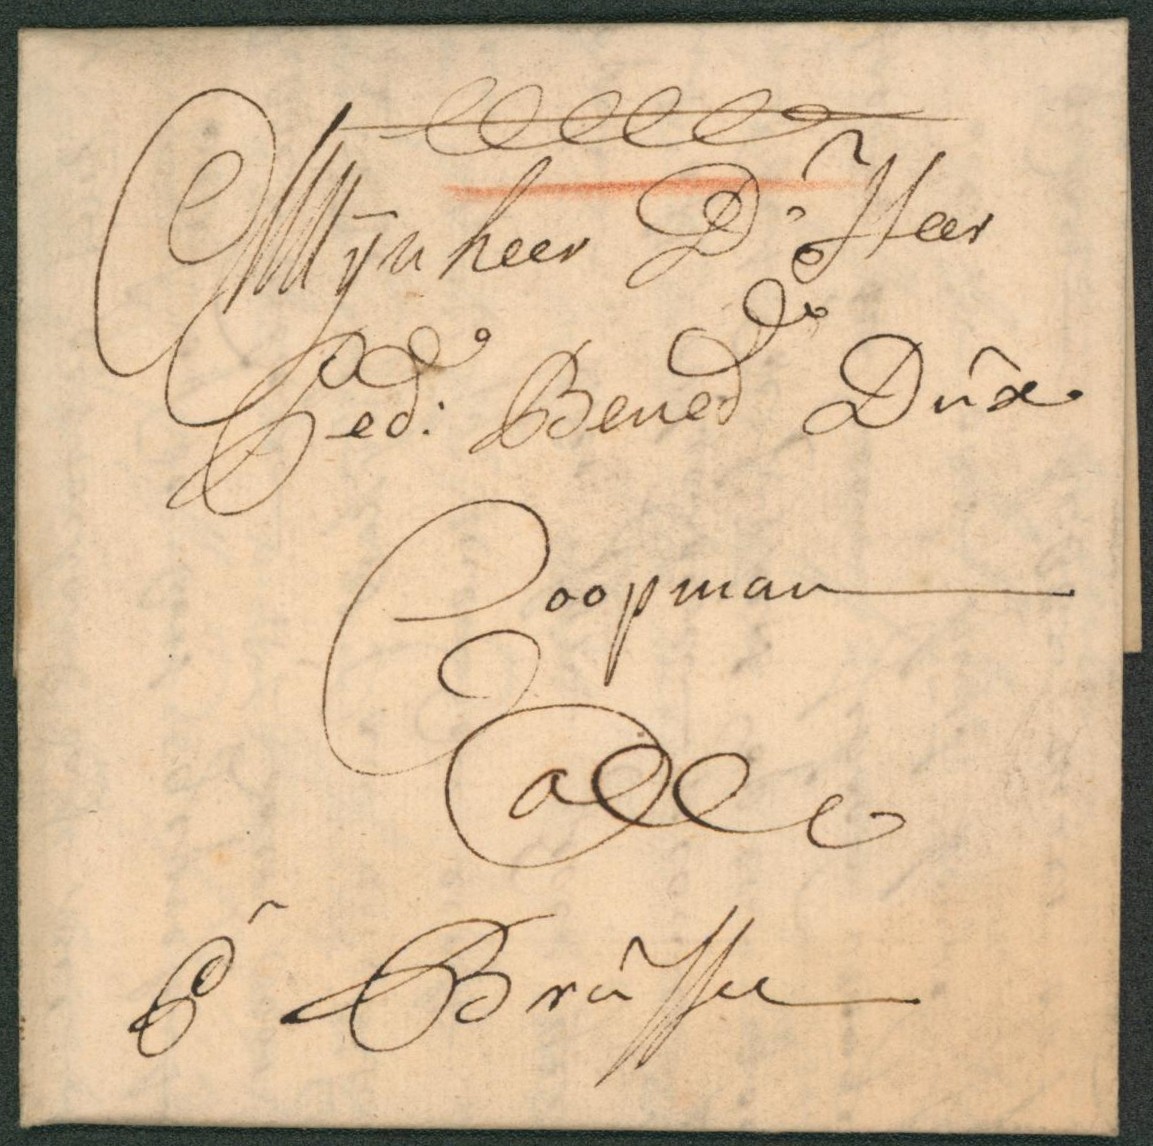 Mijnheer D'Heer
Ged: Bened Dûx
Coopman
Calle
P Brûssel